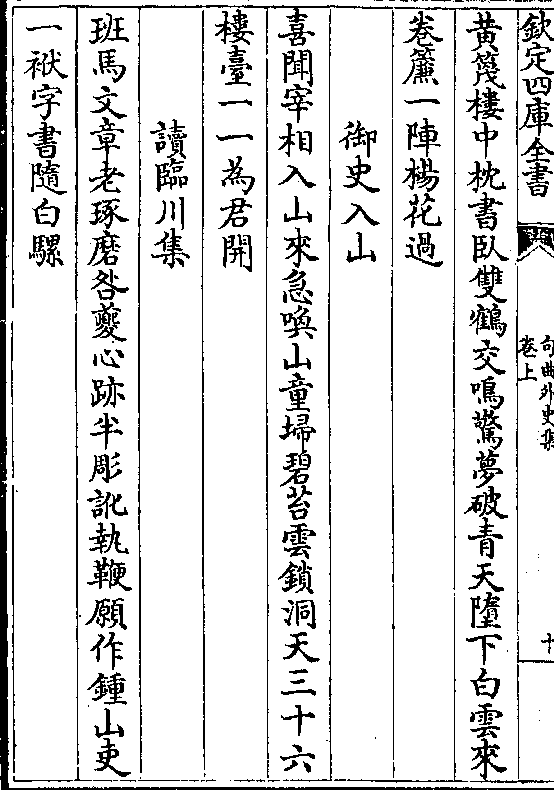 欽定四庫全書
句曲外史集
卷上
十
黃篾樓中枕書臥雙鶴交鳴驚夢破青天墮下白雲來
卷簾一陣楊花過
御史入山
喜聞宰相入山來急喚山童埽碧苔雲鎖洞天三十六
樓臺一一為君開
讀臨川集
班馬文章老琢磨咎夔心跡半彫訛執鞭願作鍾山吏
一袱字書隨白騾